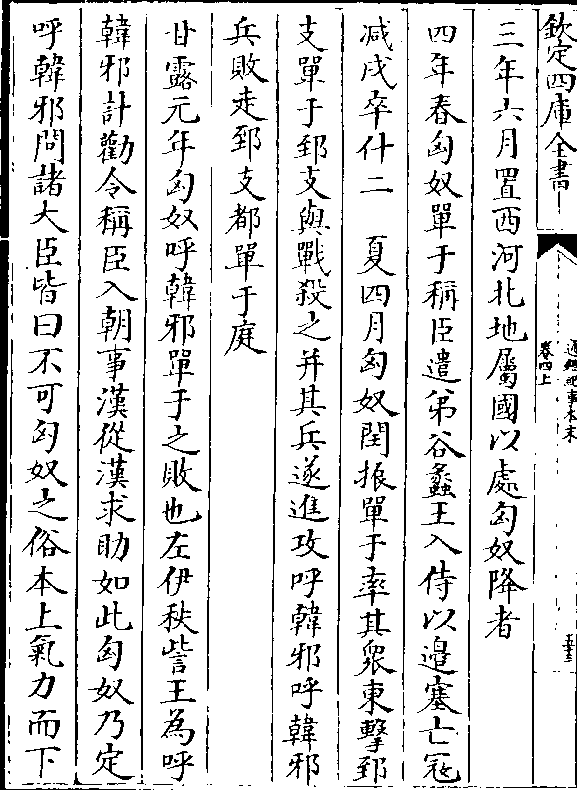 欽定四庫全書
通鑑紀事本末
卷四上
三年六月置西河北地屬國以處匈奴降者
四年春匈奴單于稱臣遣弟谷蠡王入侍以邉塞亡冦
减戍卒什二　夏四月匈奴閏振單于率其衆東擊郅
支單于郅支與戰殺之并其兵遂進攻呼韓邪呼韓邪
兵敗走郅支都單于庭
甘露元年匈奴呼韓邪單于之敗也左伊秩訾王為呼
韓邪計勸令稱臣入朝事漢從漢求助如此匈奴乃定
呼韓邪問諸大臣皆曰不可匈奴之俗本上氣力而下